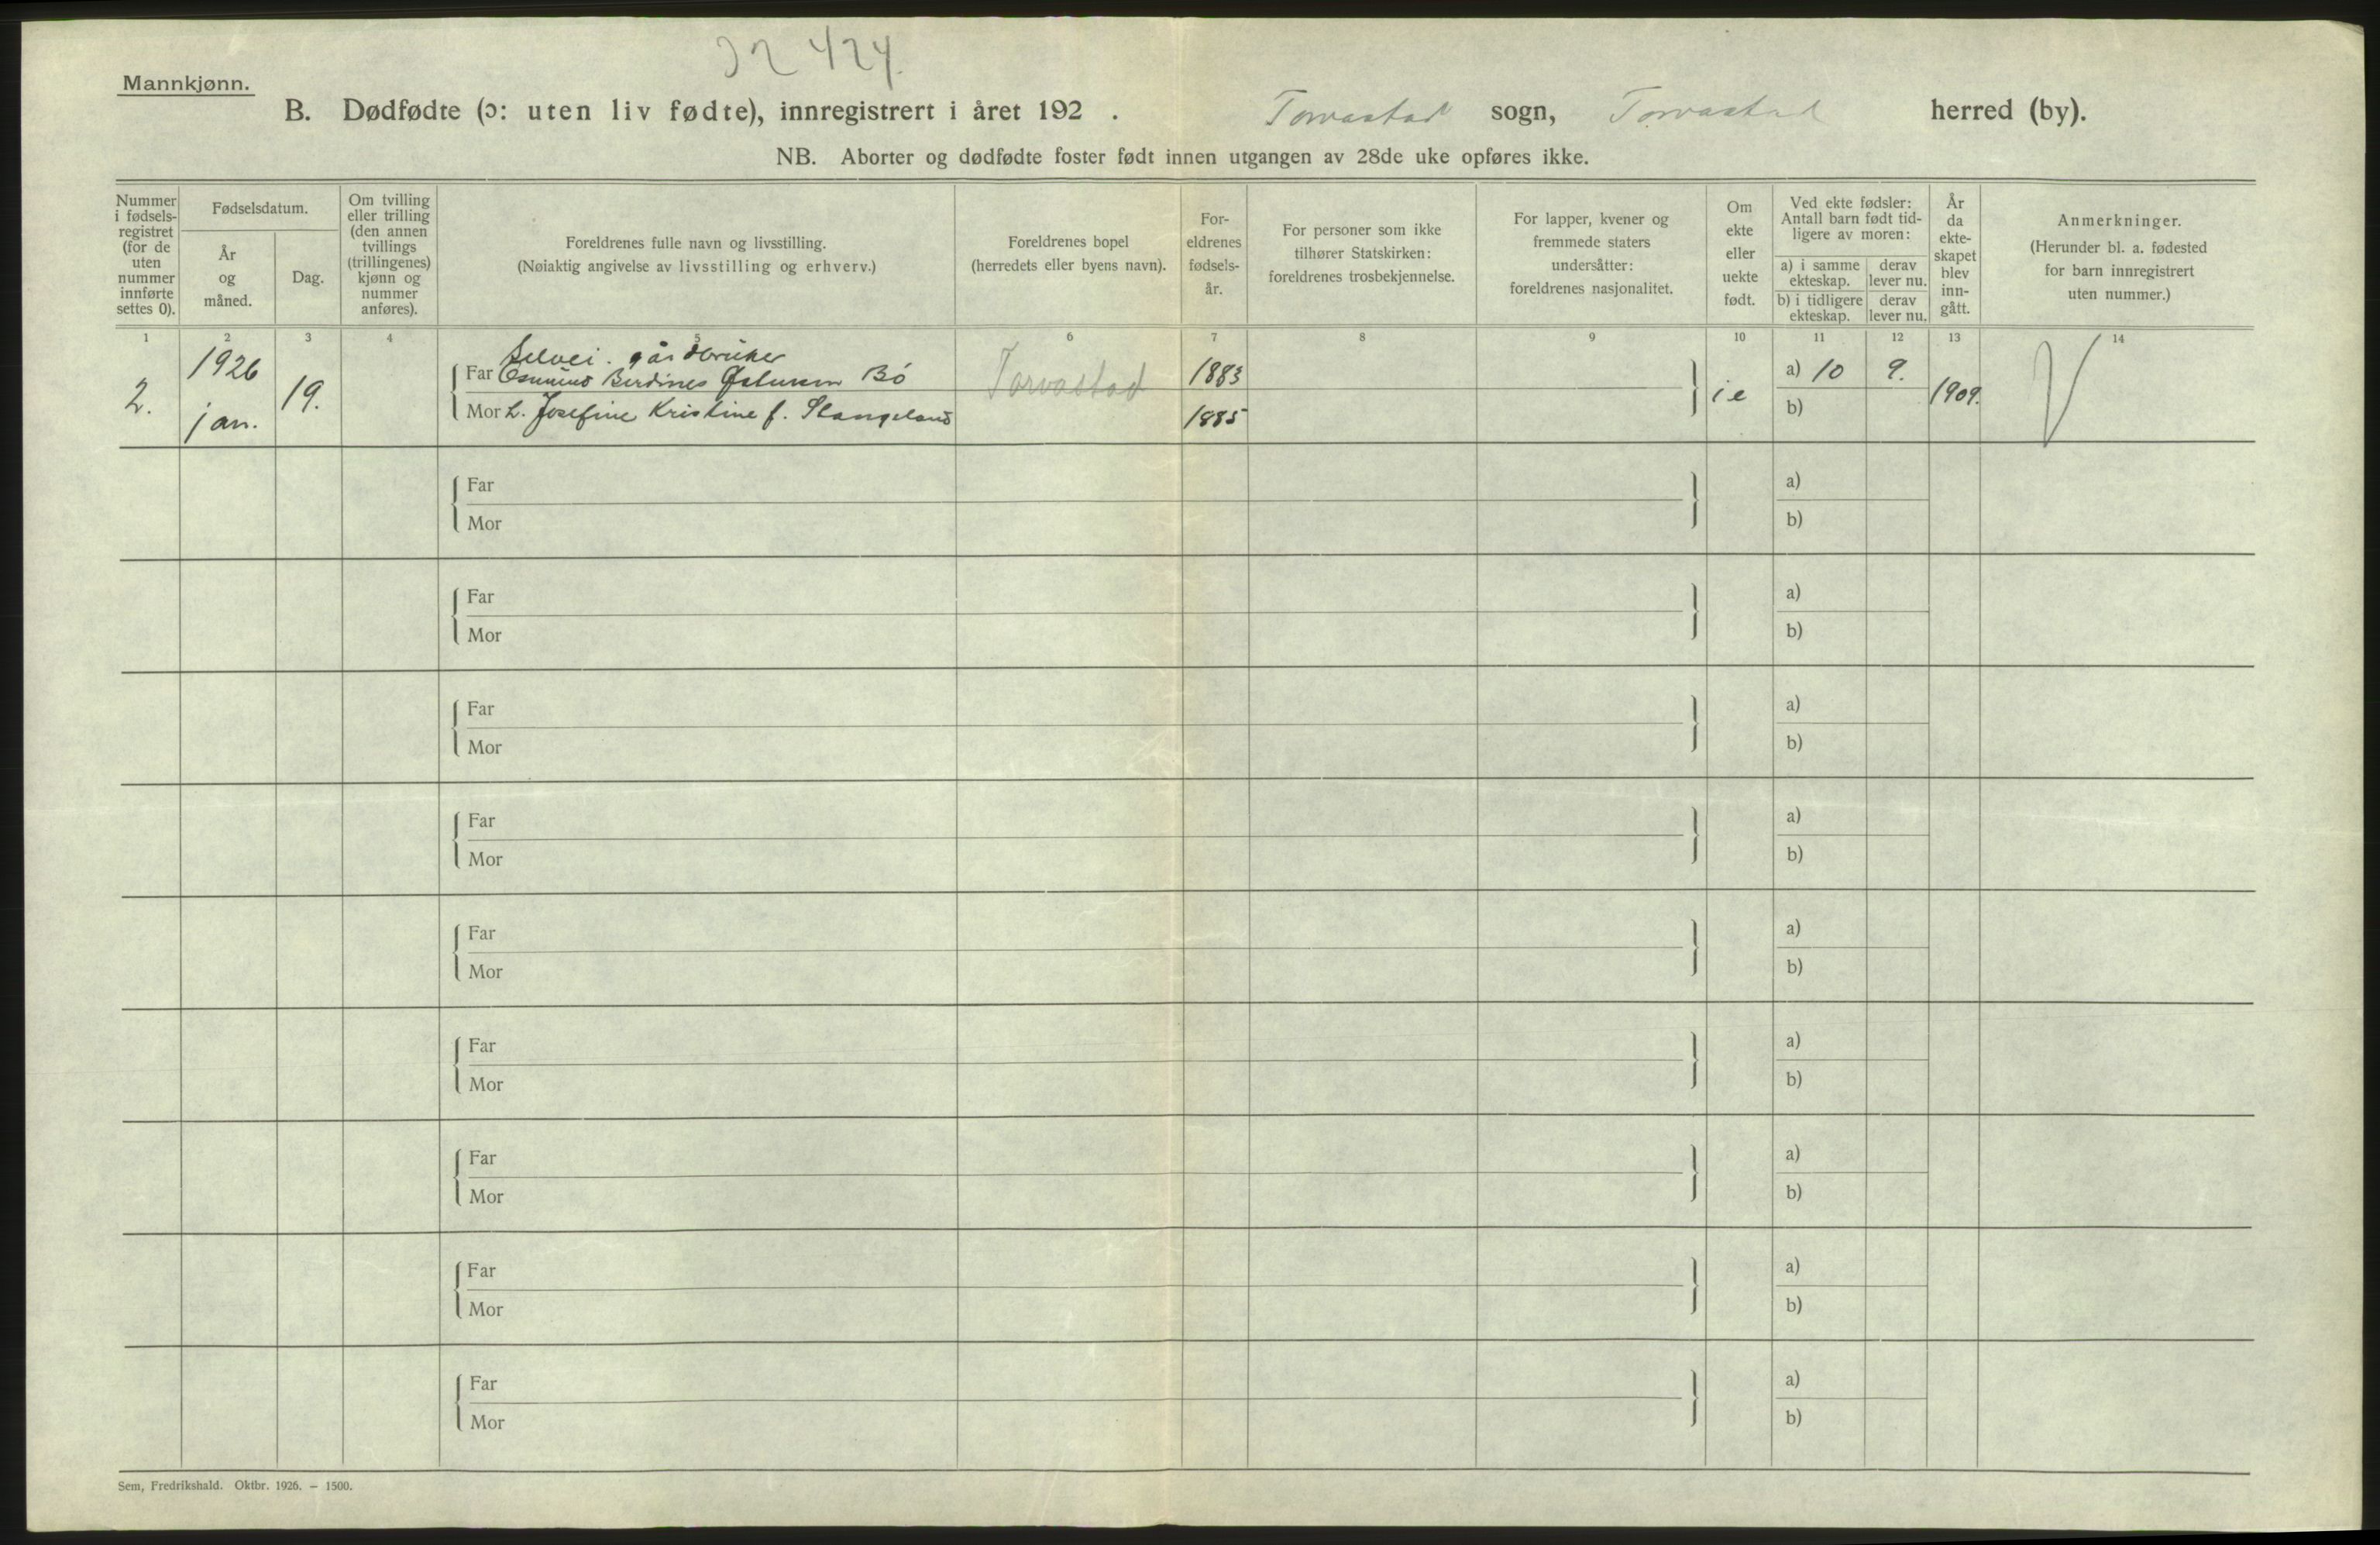 32 424
Mannkjønn.
B. Dødfødte (ɔ: uten liv fødte), innregistrert i året 192 . Torvastad sogn, Torvastad herred (by).
NB. Aborter og dødfødte foster født innen utgangen av 28de uke opføres ikke.
Nummer i fødsels-registret (for de uten nummer innførte settes 0).
Fødselsdatum.
År og måned.
Dag.
Om tvilling eller trilling (den annen tvillings (trillingenes) kjønn og nummer anføres).
Foreldrenes fulle navn og livsstilling.
(Nøiaktig angivelse av livsstilling og erhverv.)
Foreldrenes bopel
(herredets eller byens navn).
For-eldrenes fødsels-år.
For personer som ikke tilhører Statskirken: foreldrenes trosbekjennelse.
For lapper, kvener og fremmede staters undersåtter: foreldrenes nasjonalitet.
Om ekte eller uekte født.
Ved ekte fødsler: Antall barn født tid-ligere av moren:
a) i samme ekteskap.
derav lever nu.
b) i tidligere ekteskap.
derav lever nu.
År da ekte-skapet blev inn-gått.
Anmerkninger.
(Herunder bl. a. fødested for barn innregistrert uten nummer.)
1 2 3 4 5 6 7 8 9 10 11 12 13 14
Selvei. gårdbruker
2. 1926 jan. 19. Far Berdines Bö Torvastad 1883 i e a) 10 9. 1909.
Mor L. Josefine Kristine f. Stangeland 1885 b)
Far a)
Mor b)
Far a)
Mor b)
Far a)
Mor b)
Far a)
Mor b)
Far a)
Mor b)
Far a)
Mor b)
Far a)
Mor b)
Far a)
Mor b)
Far a)
Mor b)
Sem, Fredrikshald. Oktbr. 1926. – 1500.